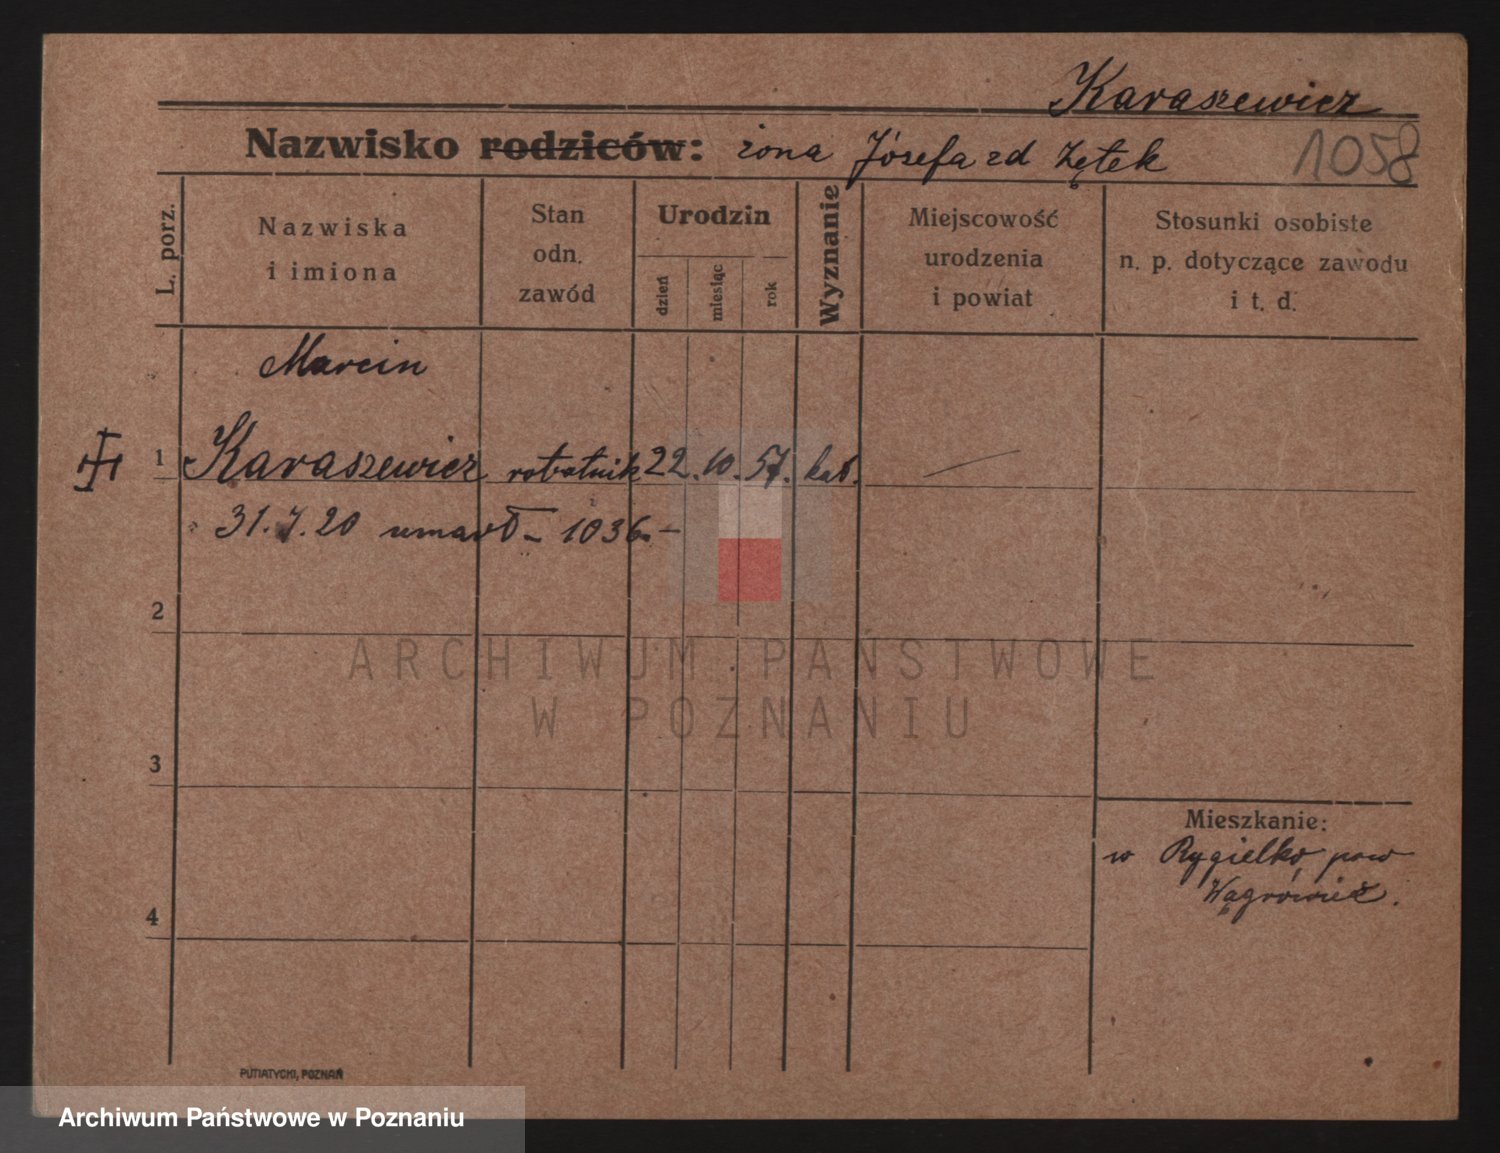 Karaszewicz
Nazwisko rodziców: żona Józefa zd Zętek
1058
L. porz.
Nazwiska
i imiona
Stan
odn.
zawód
Urodzin
dzień
miesiąc
rok
Wyznanie
Miejscowość
urodzenia
i powiat
Stosunki osobiste
n. p. dotyczące zawodu
i t. d.
Marcin
1 Karaszewicz robotnik 22. 10. 57. kat.
31. 7. 20 umarł – 1036. –
2
ARCHIWUM PAŃSTWOWE
W POZNANIU
3
Mieszkanie:
w pow
Wągrówiec.
4
PUTIATYCKI, POZNAŃ
Archiwum Państwowe w Poznaniu